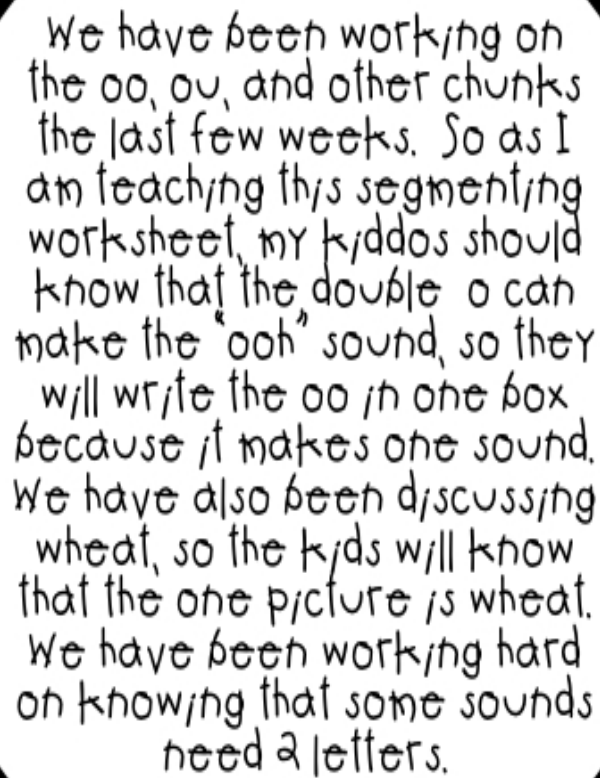 We have been working on
the oo, ou, and other chunks
the last few weeks. So as I
am teaching this segmenting
worksheet, my kiddos should
know that the double o can
make the "ooh" sound, so they
will write the oo in one box
because it makes one sound.
We have also been discussing
wheat, so the kids will know
that the one picture is wheat.
We have been working hard
on knowing that some sounds
need 2 letters.